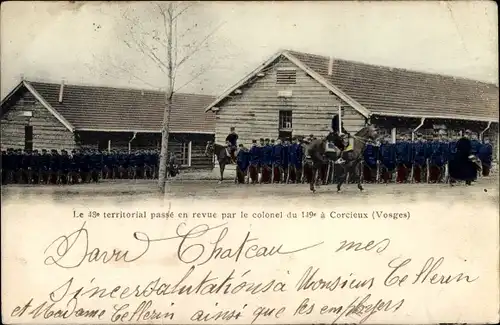 Le 43e territorial passé en revue par le colonel du 149e à Corcieux (Vosges)
Davu Chateau mes
Sincersalutations à Monsieur Cellerin
et Madame Cellerin ainsi que les employers